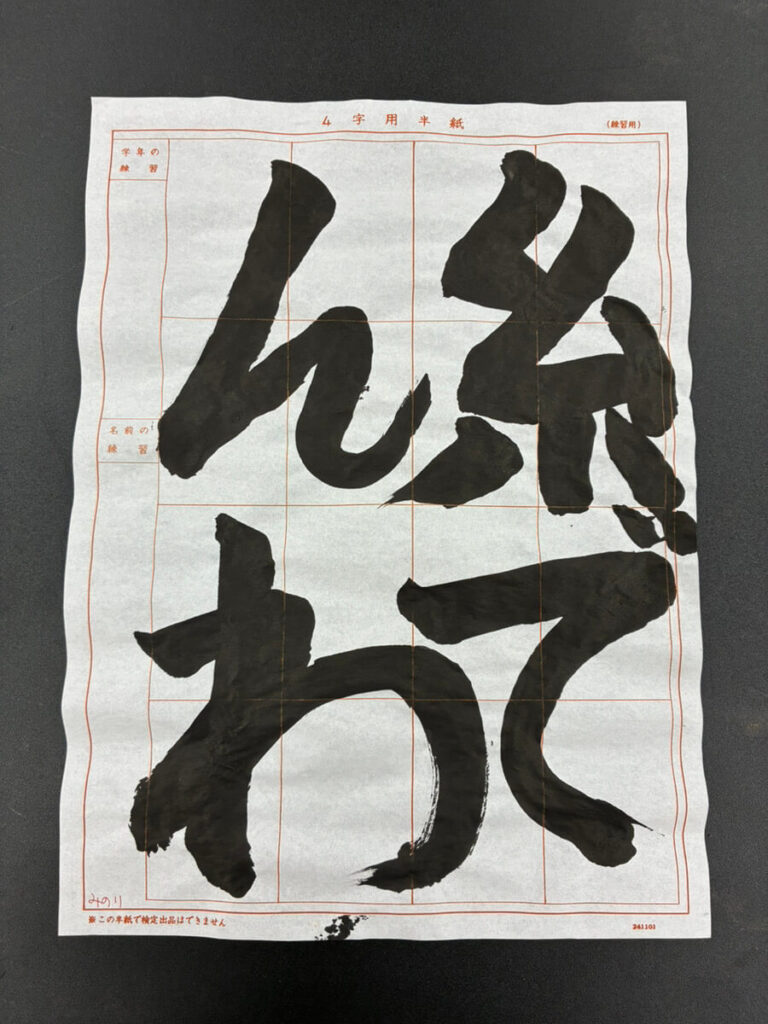 4字用半紙
(練習用)
糸で
んわ
学年の
練習
名前の
練習
みのり
※この半紙で検定出品はできません
241101